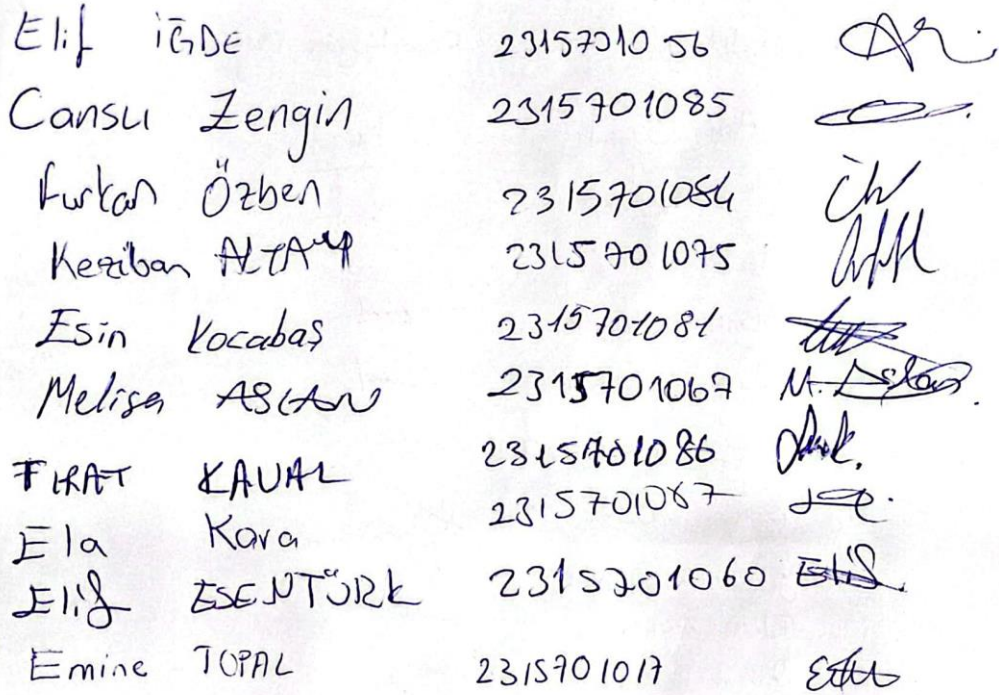 Elif İĞDE 2315701056
Cansu Zengin 2315701085
Furkan Özben 2315701084
Keziban ALTAY 2315701075
Esin Kocabaş 2315701081
Melisa ASLAN 2315701067 M. Aslan
FIRAT KAVAL 2315701086
Ela Kara 2315701087
Elif ESENTÜRK 2315701060 Elif
Emine TOPAL 2315701017